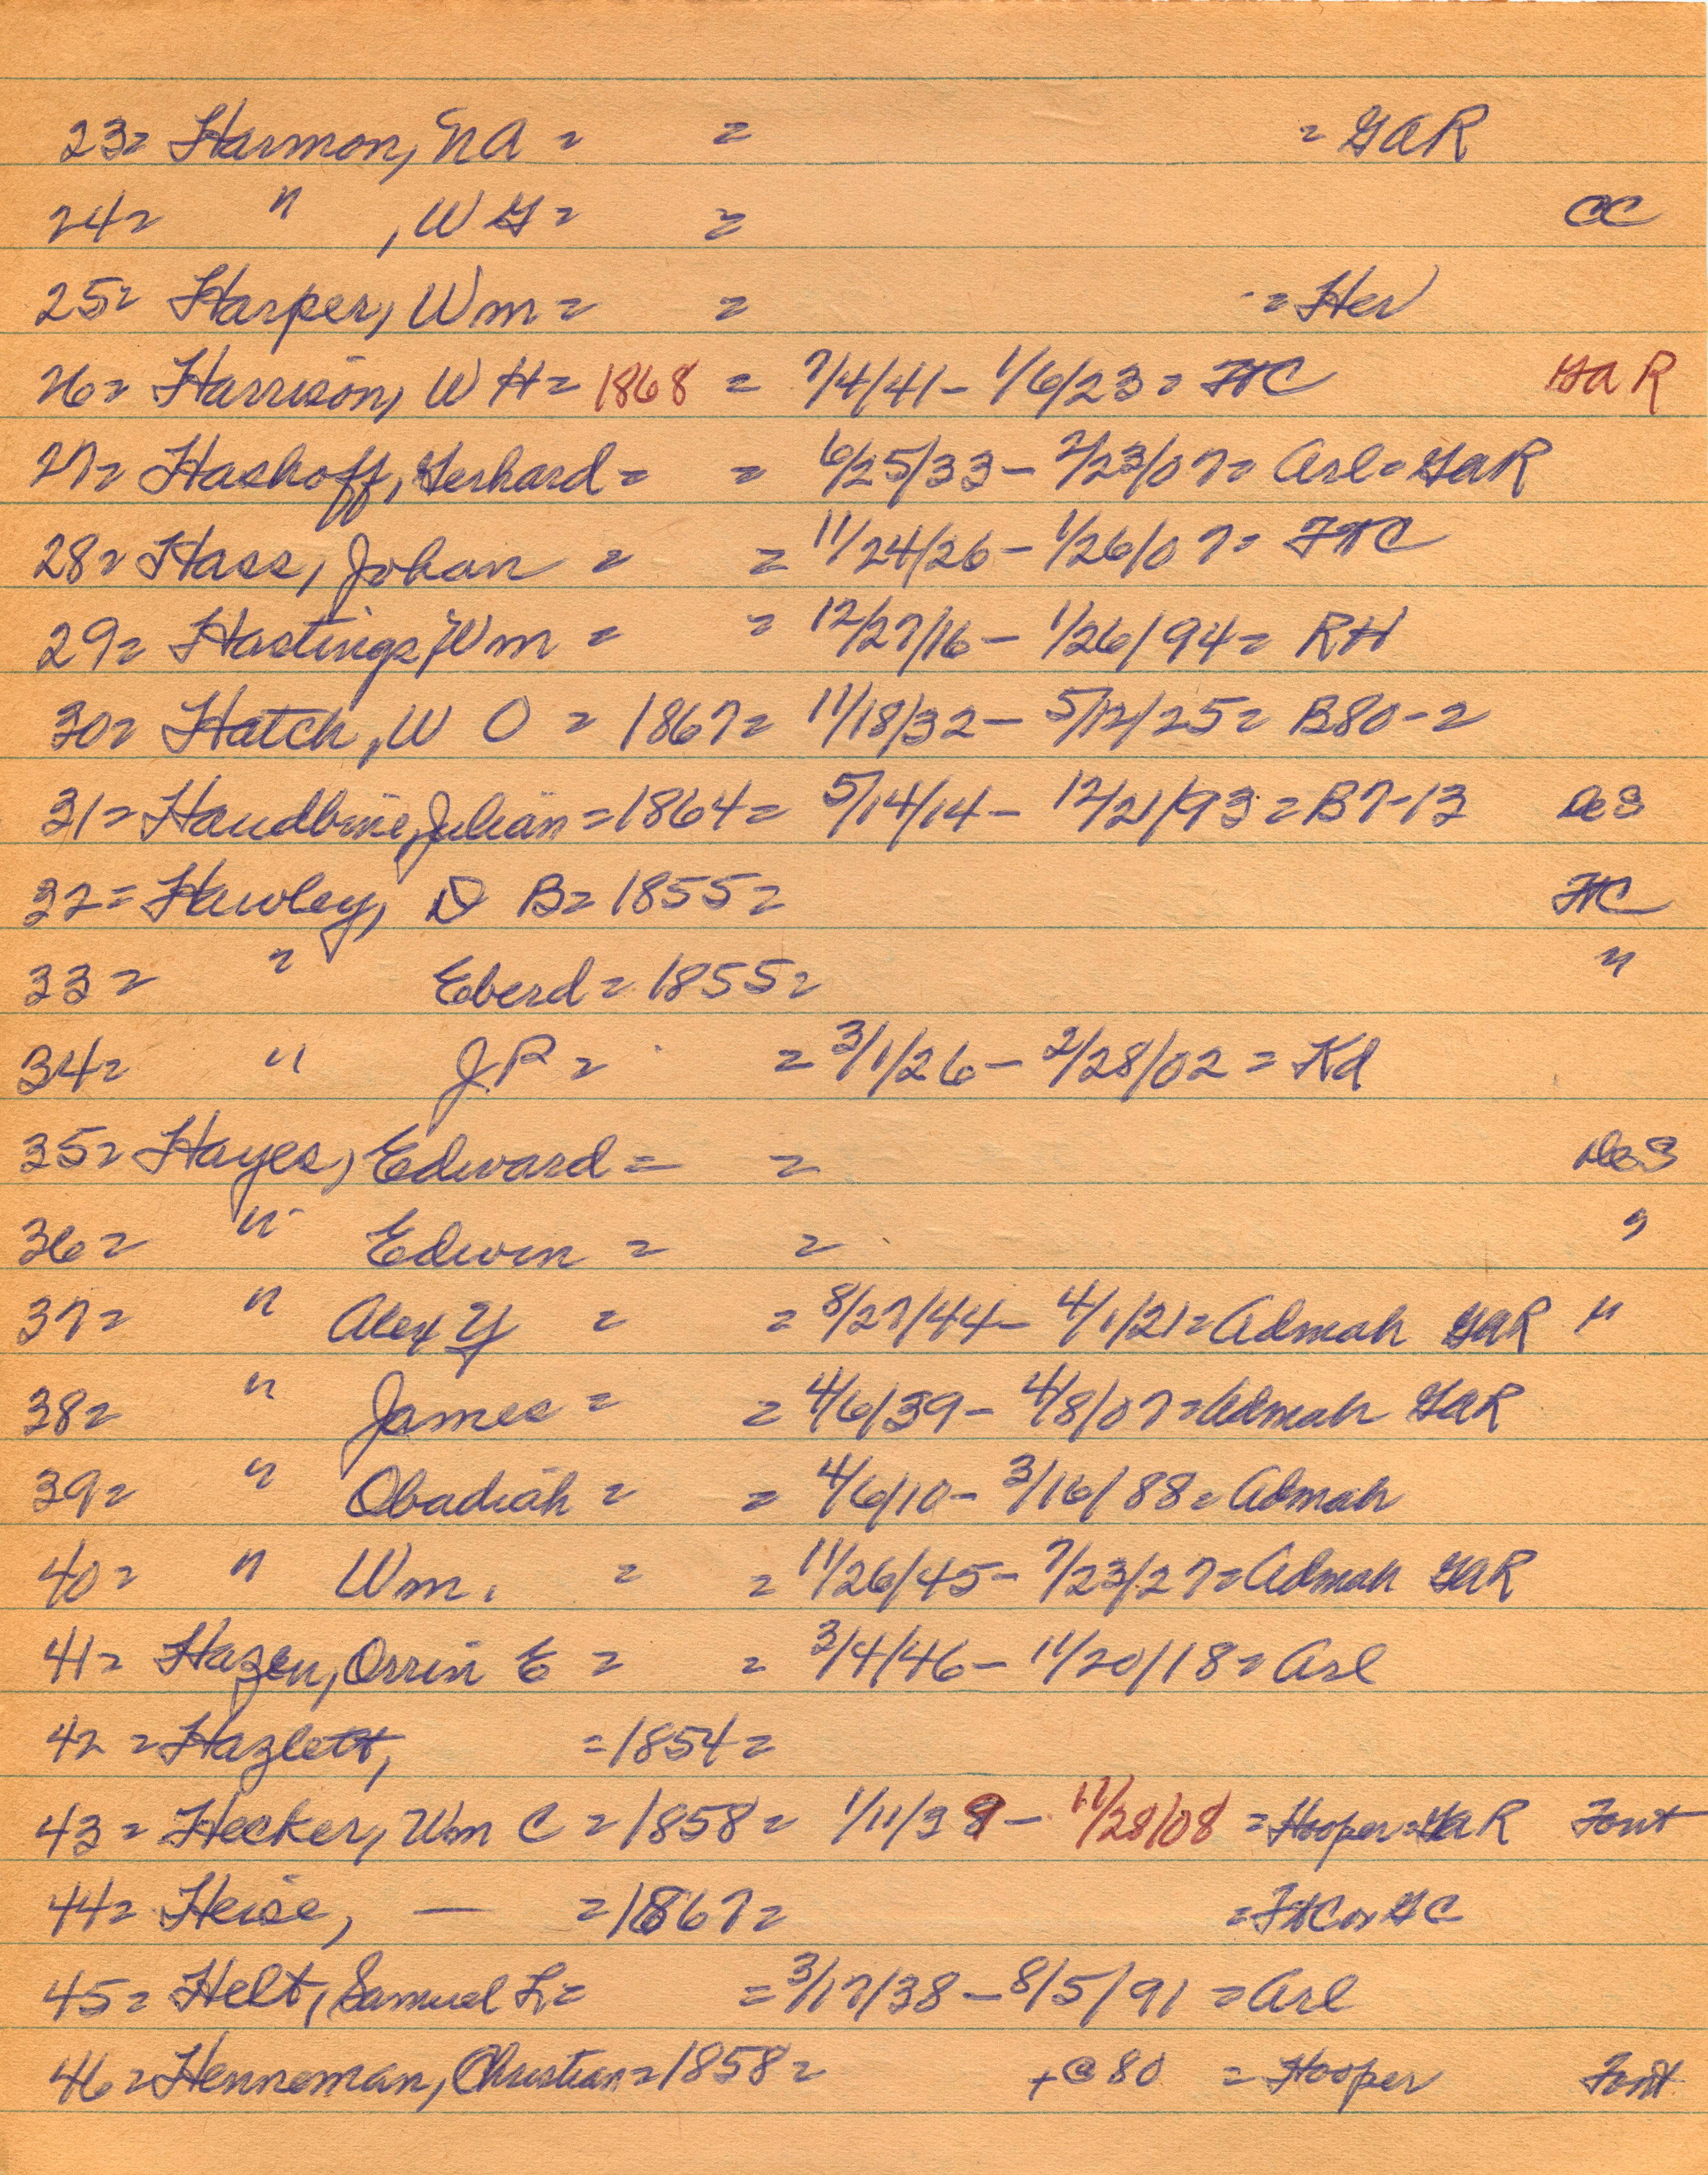 23= Harmon, NA = = = GAR
24= " , W G = = CC
25= Harper, Wm = = = Her
26= Harrison, W H = 1868 = 7/4/41 - 1/6/23 = FHC GAR
27= Hashoff, Gerhard = = 6/25/33 - 2/23/07 = Arl = GAR
28= Hass, Johan = = 11/24/26 - 1/26/07 = FHC
29= Hastings, Wm = = 12/27/16 - 1/26/94 = RH
30= Hatch, W O = 1867 = 11/18/32 - 5/12/25 = B80-2
31= Haudbine, Julian = 1864 = 5/14/14 - 12/21/93 = B7-13 DeS
32= Hawley, D B = 1855 = FHC
33= " Eberd = 1855 = "
34= " J.P = = 3/1/26 - 2/28/02 = Kd
35= Hayes, Edward = = DeS
36= " Edwin = = "
37= " Alex Y = = 8/27/44 - 4/1/21 = Admah GAR "
38= " James = = 4/6/39 - 4/8/07 = Admah GAR
39= " Obadiah = = 4/6/10 - 3/16/88 = Admah
40= " Wm. = = 11/26/45 - 7/23/27 = Admah GAR
41= Hazen, Orrin E = = 3/4/46 - 11/20/18 = Arl
42= Hazlett, = 1854 =
43= Hecker, Wm C = 1858 = 1/11/39 - 11/28/08 = Hooper = GAR Font
44= Heise, — = 1867 = = FHC or GC
45= Helt, Samuel L = = 3/17/38 - 8/5/91 = Arl
46= Henneman, Christian = 1858 = + @ 80 = Hooper Font